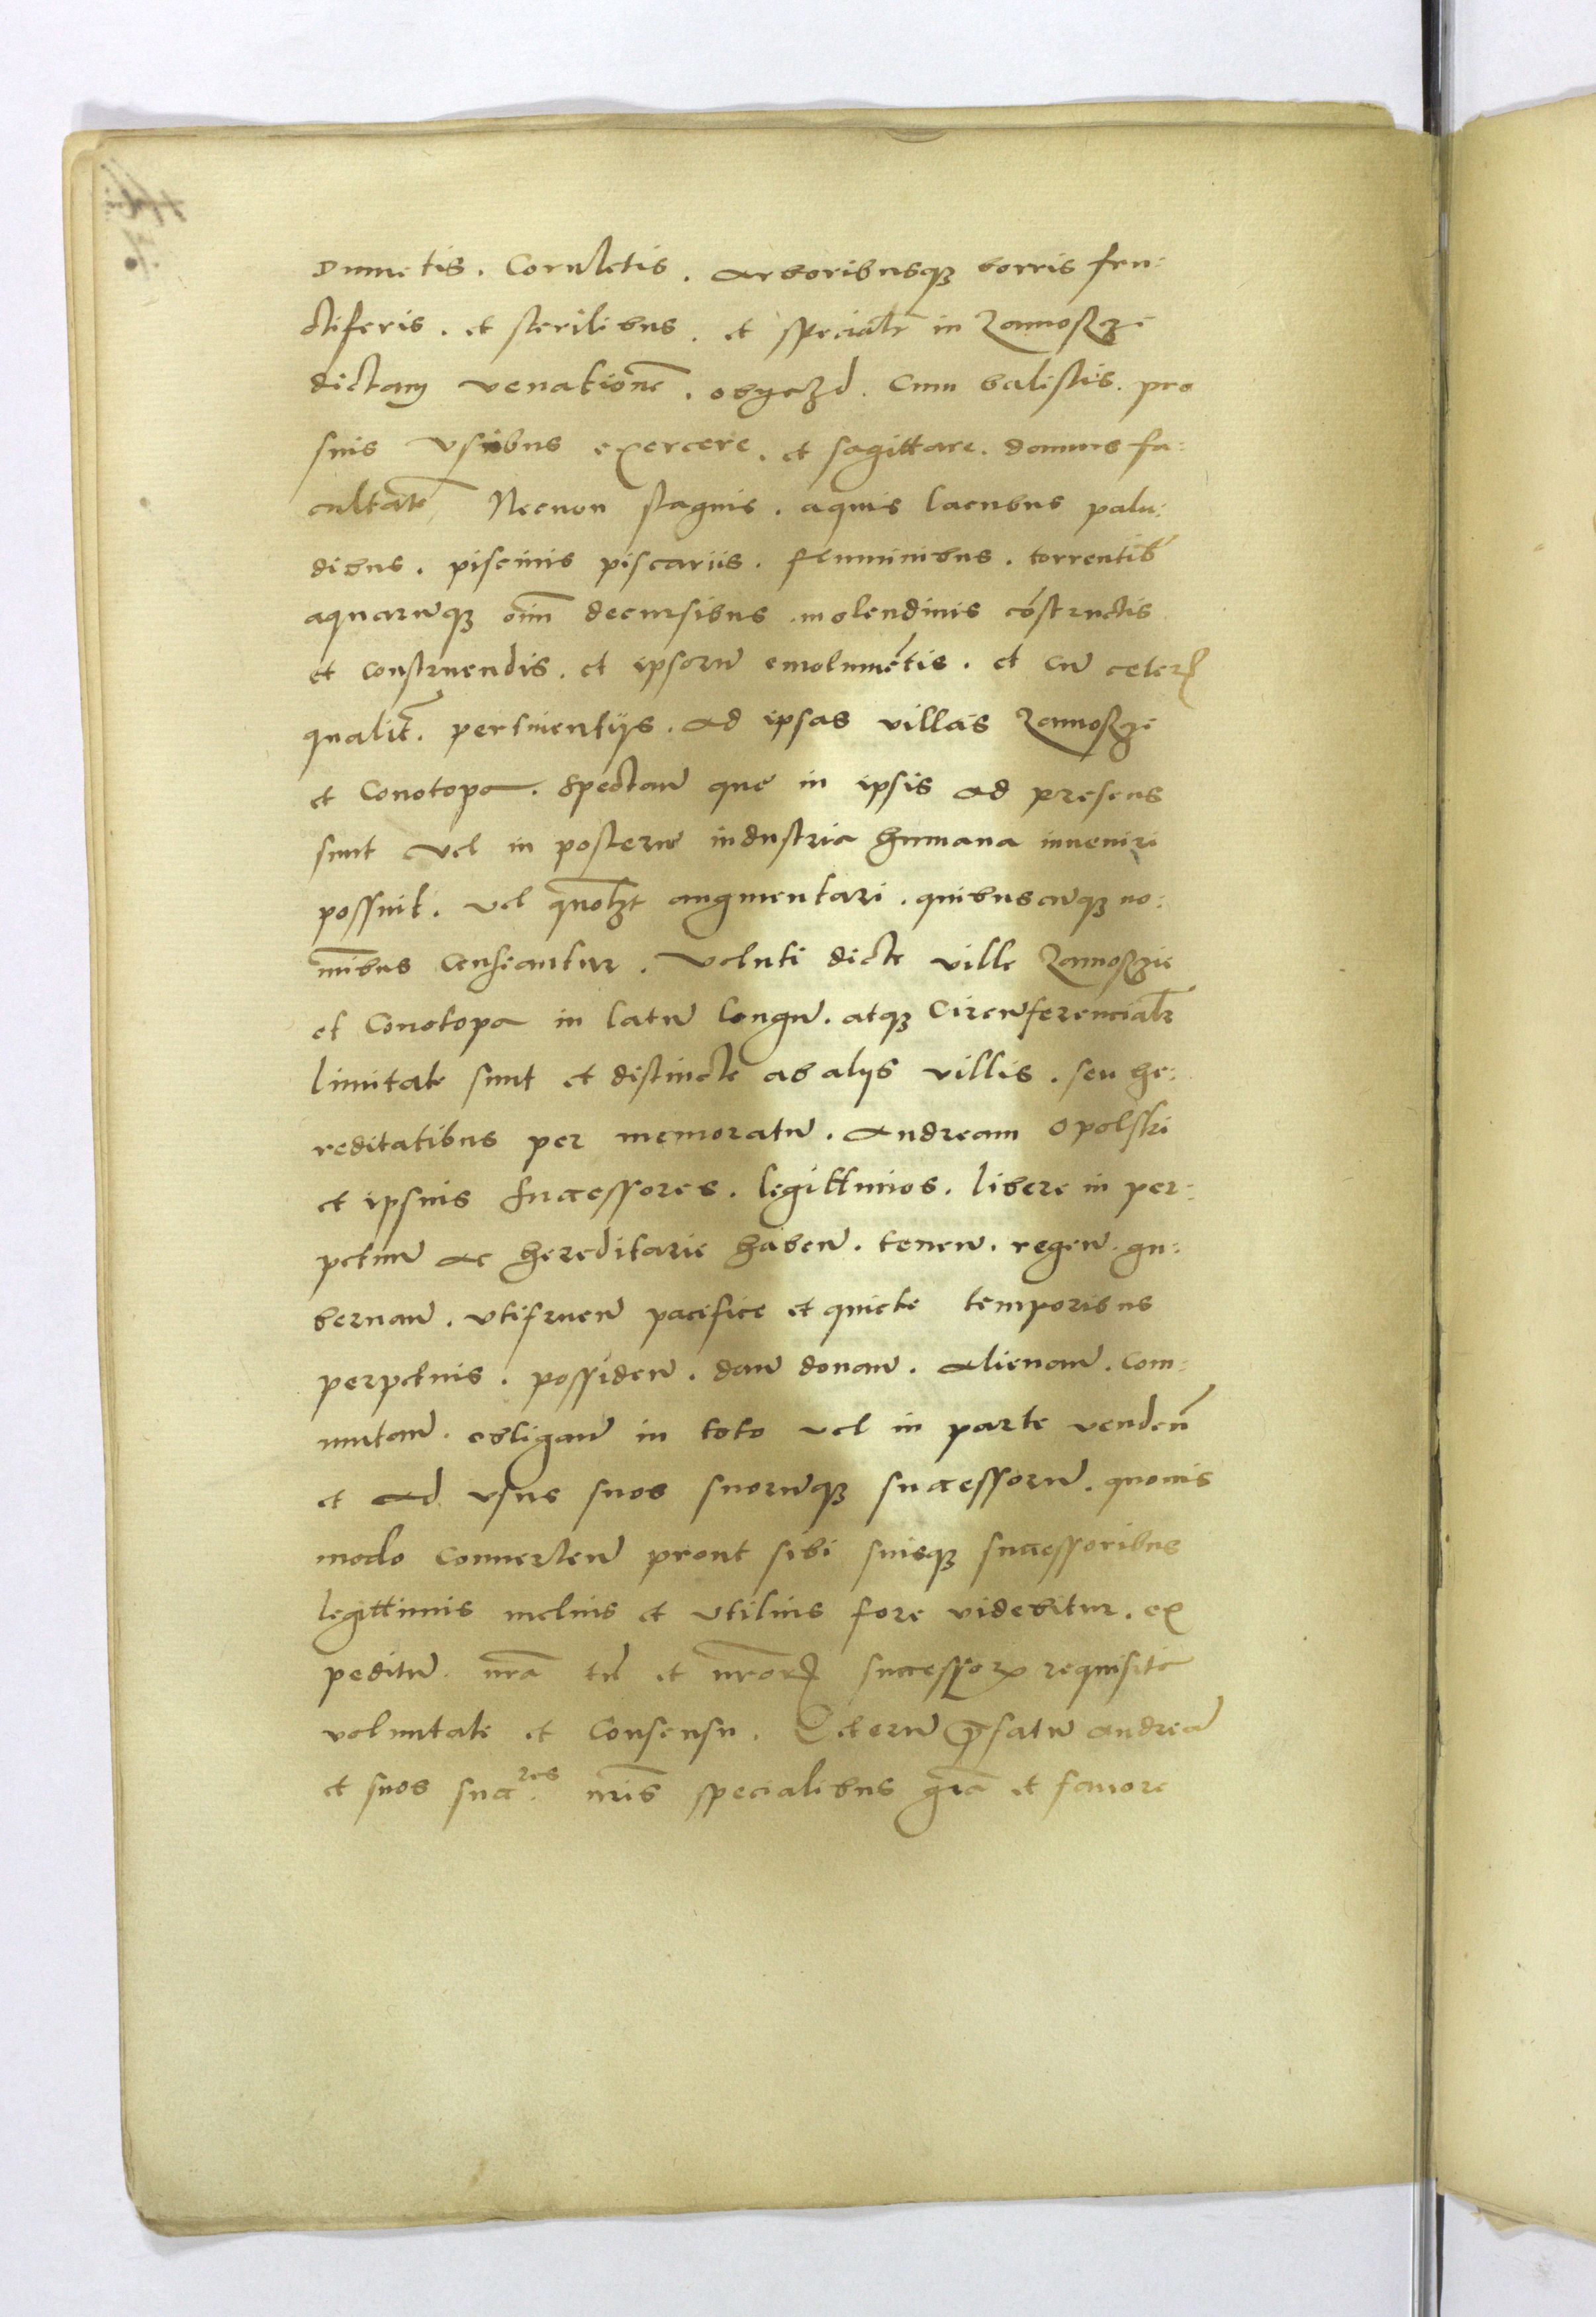 Dumetis. Coruletis. Arboribusqꝫ borris fru:
ctiferis. et sterilibus. et specialr̄ in Zamoszye
dictam venationē. obyazd. Cum balistis. pro
suis vsibus exercere. et sagittare. damus fa:
cultatē Necnon stagnis. aquis lacubus palu:
dibus. piscinis piscariis. fluminibus. torrentib'
aquarūqꝫ oīm decursibus molendinis cōstructis
et construendis. et ipsorū emolumētis. et cū ceterꝭ
qualitꝭ. pertinentijs. Ad ipsas villas Zamoszye
et Conotopa. Spectañ que in ipsis ad presens
sunt vel in posterū industria humana inueniri
possunt. vel quōlꝫt augmentari. quibuscūqꝫ no:
mībus censeantur. veluti dicte ville Zamoszie
et Conotopa in latū longū. atqꝫ Circūferencialr̄
limitate sunt et distincte ab alijs villis. seu he:
reditatibus per memoratū. Andream Opolski
et ipsius successores. legittimos. libere in per:
petuū ac hereditarie habeñ. teneñ. regeñ. gu:
bernañ. vtifrueñ pacifice et quiete temporibus
perpetuis. possideñ. dañ donañ. Alienañ. Com:
mutañ. obligañ in toto vel in parte vendeñ
et ad vsus suos suorūqꝫ successorū. quouis
modo Conuerteñ prout sibi suisqꝫ successoribus
legittimis melius et vtilius fore videbitur. ex
peditū. nrā tñ et nrorꝝ successorꝝ requisita
voluntate et Consensu. Ceterū p̄fatū Andreā
et suos succ.res nrīs specialibus grā et fauore